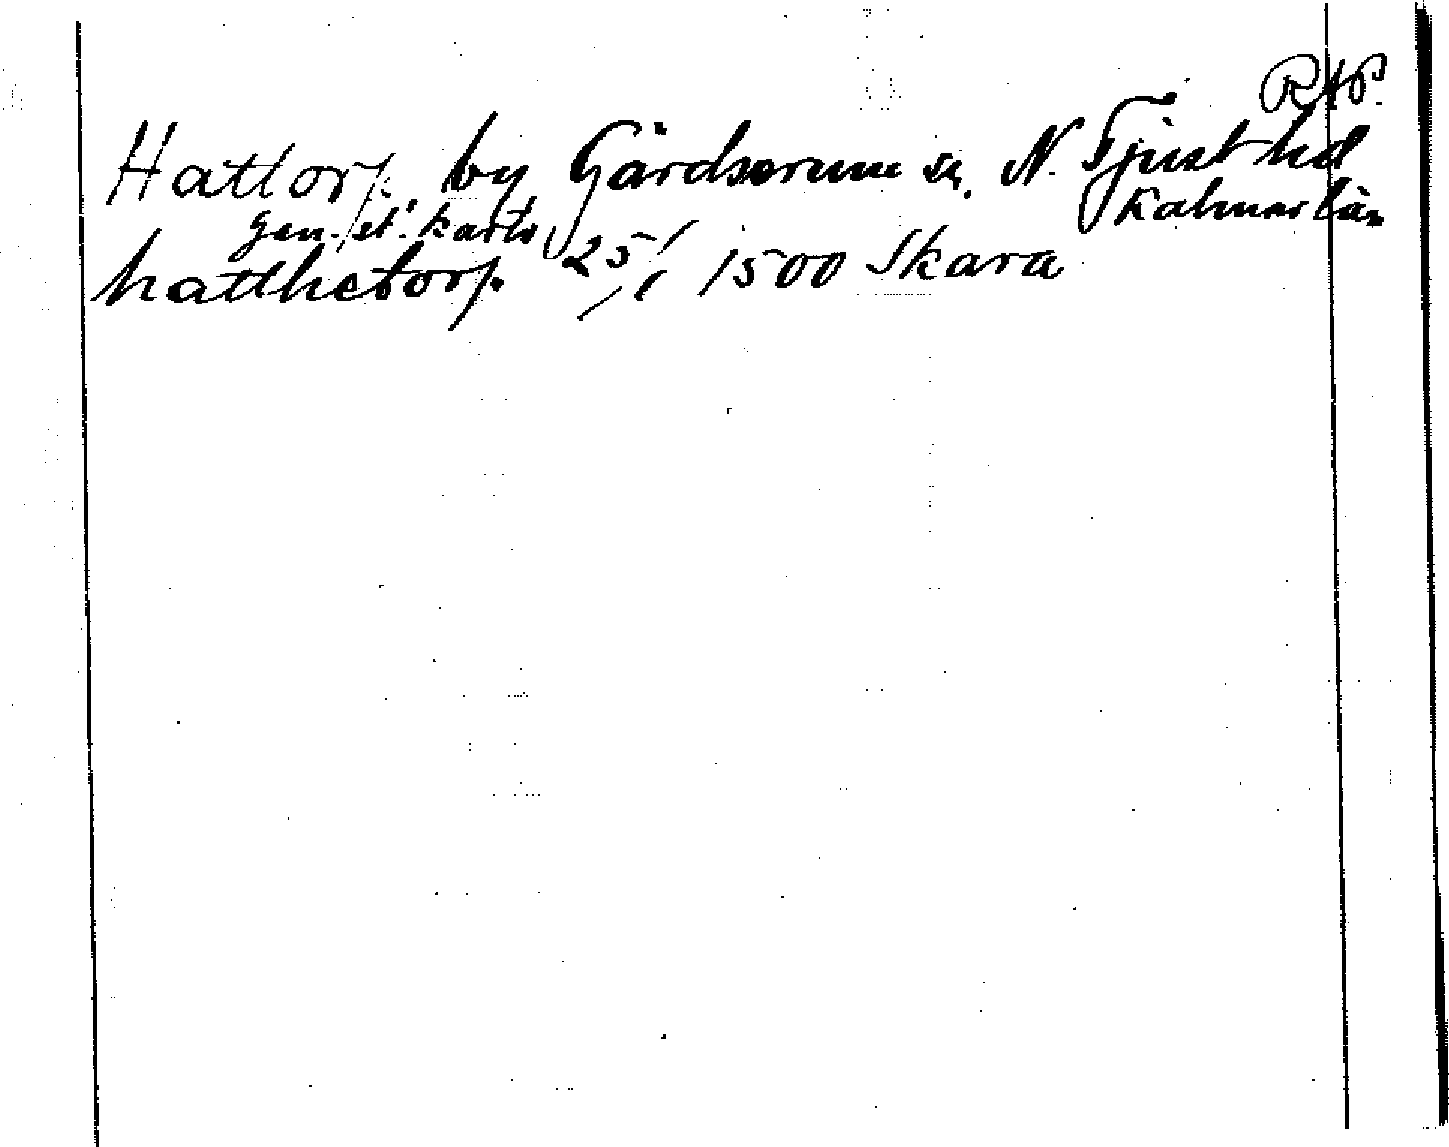 RAP.
Hattorp by Gärdserum sn. N. Tjust hd
Kalmar län
gen. st. karta
hatthetorp 25/1 1500 Skara